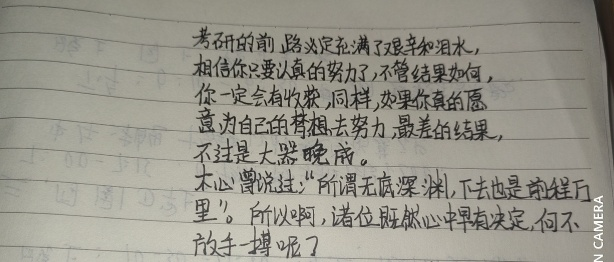 考研的前路必定充满了艰辛和泪水，
相信你只要认真的努力了，不管结果如何，
你一定会有收获，同样，如果你真的愿
意为自己的梦想去努力，最差的结果，
不过是大器晚成。
木心曾说过：“所谓无底深渊，下去也是前程万
里”。所以啊，诸位既然心中早有决定，何不
放手一搏呢了
N CAMERA